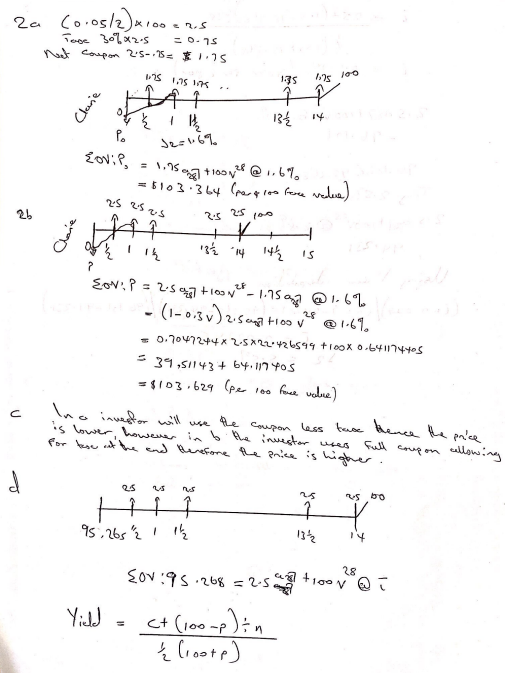 2a (0.05/2) x 100 = 2.5
Tax 30% x 2.5 = 0.75
Net coupon 2.5-.75 = $ 1.75
1.75 1.75 1.75 .. 1.75 1.75 100
0 ½ 1 1½ 13½ 14
P₀ J2=1.6%
EOV: P₀ = 1.75 a28̅| + 100 v²⁸ @ 1.6%
= $103.364 (per $100 face value)
2b 2.5 2.5 2.5 2.5 2.5 100
0 ½ 1 1½ 13½ 14 14½ 15
P
EOV: P = 2.5 a28̅| + 100 v²⁸ - 1.75 a28̅| @ 1.6%
= (1-0.3v) 2.5 a28̅| + 100 v²⁸ @ 1.6%
= 0.7047244 x 2.5 x 22.426599 + 100 x 0.641174405
= 39,51143 + 64.117405
= $103.629 (per 100 face value)
c In a investor will use the coupon less tax hence the price
is lower, however in b the investor uses full coupon allowing
for tax at the end therefore the price is higher.
d
2.5 2.5 2.5 2.5 2.5 100
95.265 ½ 1 1½ 13½ 14
EOV: 95.268 = 2.5 a28̅| + 100 v²⁸ @ i
Yield = C+ (100-P) ÷ n
½ (100+P)